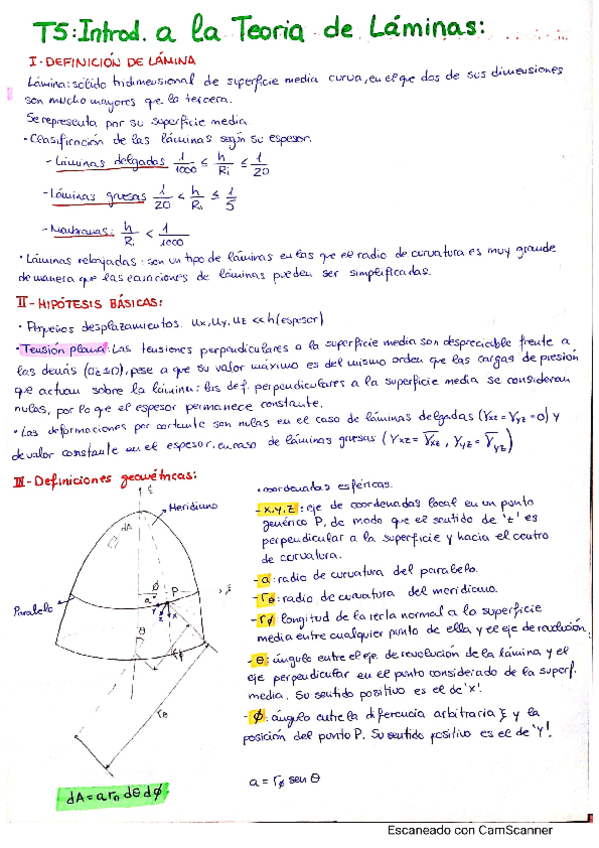 T5: Introd. a la Teoria de Láminas:
I- DEFINICIÓN DE LÁMINA
Lámina: sólido tridimensional de superficie media curva, en el que dos de sus dimensiones
son mucho mayores que la tercera.
Se representa por su superficie media.
· Clasificación de las láminas según su espesor.
- Láminas delgadas 1/1000 ≤ h/Ri ≤ 1/20
- láminas gruesas 1/20 < h/Ri ≤ 1/5
- Membranas: h/Ri < 1/1000
· Láminas rebajadas: son un tipo de láminas en las que el radio de curvatura es muy grande
de manera que las ecuaciones de láminas pueden ser simplificadas.
II- HIPÓTESIS BÁSICAS:
· Pequeños desplazamientos. ux, uy, uz << h (espesor)
· Tensión plana: Las tensiones perpendiculares a la superficie media son despreciable frente a
las demás (σz≈0), pese a que su valor máximo es del mismo orden que las cargas de presión
que actuan sobre la lámina: las def. perpendiculares a la superficie media se consideran
nulas, por lo que el espesor permanece constante.
· Las deformaciones por cortante son nulas en el caso de láminas delgadas (γxz = γyz = 0) y
de valor constante en el espesor, en caso de láminas gruesas (γxz = γ̄xz, γyz = γ̄yz)
III- Definiciones geométricas:
ξ
Meridiano
dA
Parabelo
ϕ
a
P
ξ
Y
z
x
θ
rϕ
rθ
dA = a rθ dθ dϕ
· coordenadas esféricas.
- x, y, z: eje de coordenadas local en un punto
genérico P, de modo que el sentido de 'z' es
perpendicular a la superficie y hacia el centro
de curvatura.
- a: radio de curvatura del parabelo.
- rθ: radio de curvatura del meridiano.
- rϕ longitud de la recta normal a la superficie
media entre cualquier punto de ella y el eje de revolución.
- θ: ángulo entre el eje de revolución de la lámina y el
eje perpendicular en el punto considerado de la superf.
media. Su sentido positivo es el de 'x'.
- ϕ: ángulo entre la diferencia arbitraria ξ y la
posición del punto P. Su sentido positivo es el de 'y'.
a = rϕ sen θ
Escaneado con CamScanner